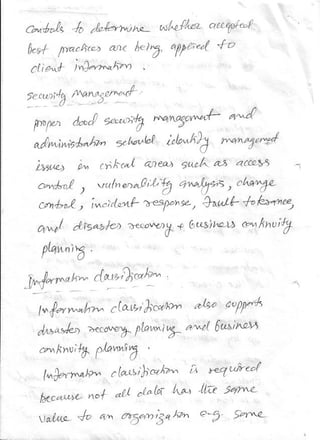 Controls to determine whether accepted
best practices are being applied to
client information.
Security Management
proper data security management and
administration schould identify management
issues in critical areas such as access
control, vulnerability analysis, change
control, incident response, fault tolerance,
and disaster recovery & business continuity
planning.
Information classification.
Information classification also supports
disaster recovery planning and business
continuity planning.
Information classification is required
because not all data has the same
value to an organization e.g. some